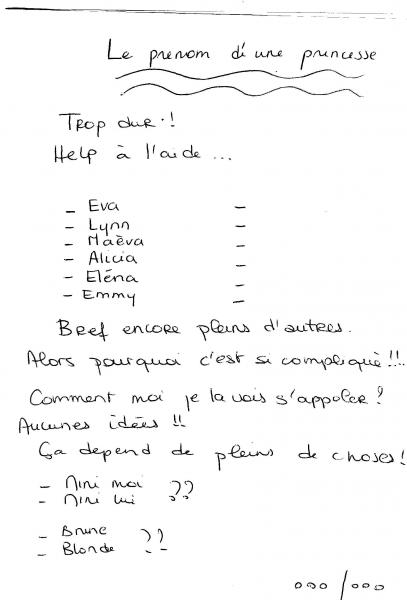 Le prenom d'une princesse
Trop dur.!
Help à l'aide ...
- Eva -
- Lynn -
- Maëva -
- Alicia -
- Eléna -
- Emmy -
Bref encore pleins d'autres.
Alors pourquoi c'est si compliqué !!!.
Comment moi je la vois s'appeler ?
Aucunes idées !!
Ça depend de pleins de choses !
- Mini moi
- Mini lui ??
- Brune
- Blonde ??
ooo/ooo